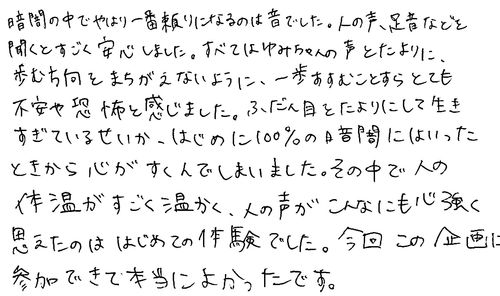 暗闇の中でやはり一番頼りになるのは音でした。人の声、足音などを
聞くとすごく安心しました。すべてはゆみちゃんの声とたよりに、
歩む方向をまちがえないように、一歩あすむことすらとても
不安や恐怖と感じました。ふだん目をたよりにして生き
すぎているせいか、はじめに100%の暗闇にはいった
ときから心がすくんでしまいました。その中で人の
体温がすごく温かく、人の声がこんなにも心強く
思えたのははじめての体験でした。今回この企画に
参加できて本当によかったです。